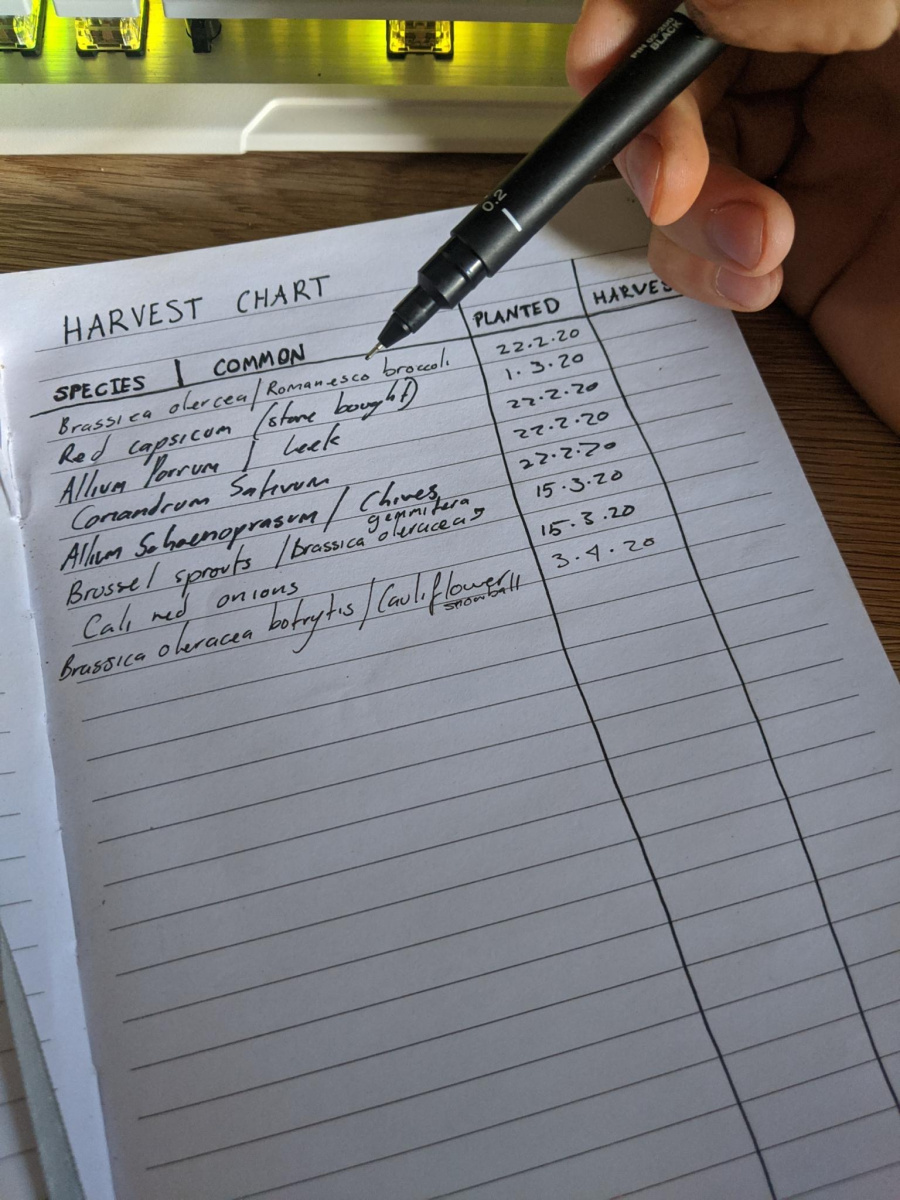 PIN 02-200
BLACK
0.2
HARVEST CHART
SPECIES | COMMON PLANTED HARVES
Brassica olercea / Romanesco broccoli 22.2.20
Red capsicum (store bought) 1.3.20
Allium Porrum / Leek 22.2.20
Coriandrum Sativum 22.2.20
Allium Schaenoprasum / Chives 22.2.20
gemmifera
Brussel sprouts / Brassica oleracea 15.3.20
Cali red onions 15.3.20
Brassica oleracea botrytis / Cauliflower 3.4.20
snowball